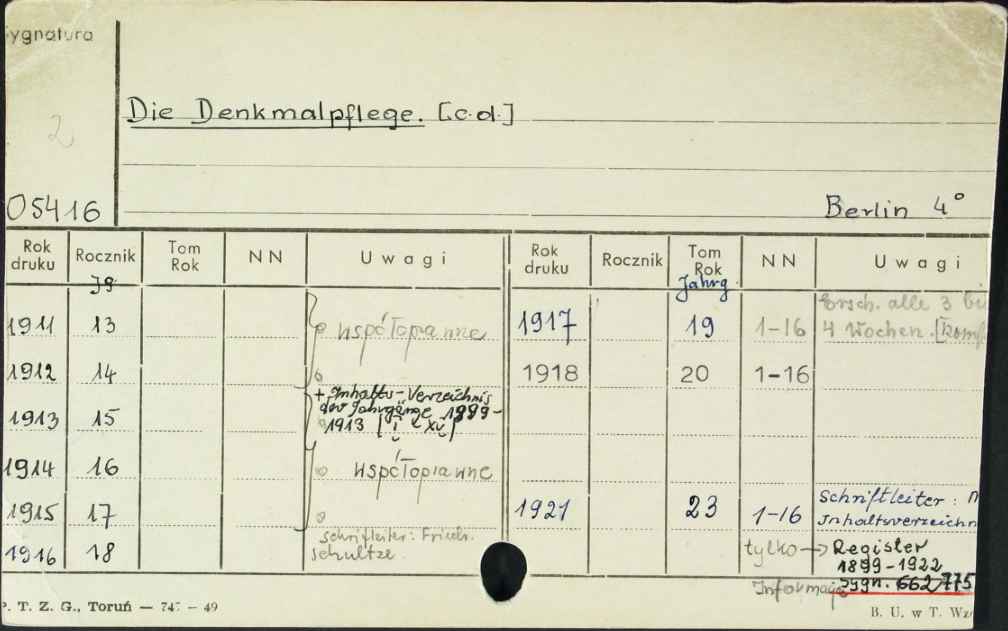 ygnatura
2
Die Denkmalpflege. [c.d.]
05416
Berlin 4°
Rok druku Rocznik Tom Rok NN Uwagi Rok druku Rocznik Tom Rok NN Uwagi
Jg Jahrg
1911 13 współoprawne 1917 19 1-16 Ersch. alle 3 bi
4 Wochen. [kompl
1912 14 1918 20 1-16
+ Inhalts-Verzeichnis
der Jahrgänge 1899-
1913 15 1913 [I - XV]
1914 16 współoprawne
1915 17 1921 23 1-16 Schriftleiter:
Inhaltsverzeichn
1916 18 Schriftleiter: Friedr.
Schultze. tylko → Register
1899-1922
Informacja Sygn. 662775
P. T. Z. G., Toruń — 747 — 49 B. U. w T. Wz